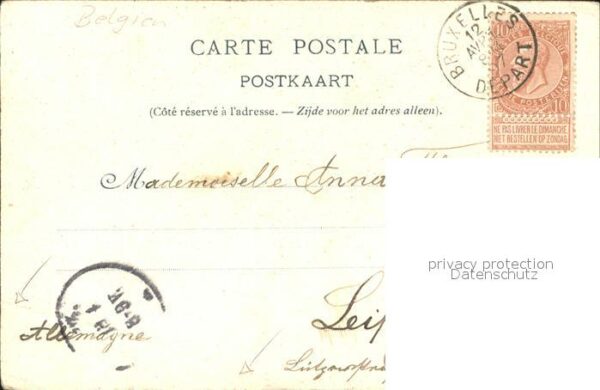 Belgien
CARTE POSTALE
POSTKAART
(Côté réservé à l'adresse. — Zijde voor het adres alleen).
BRUXELLES
12
AVR
DEPART
10
10
POSTERIJEN
NE PAS LIVRER LE DIMANCHE
NIET BESTELLEN OP ZONDAG
Mademoiselle Anna
privacy protection
Datenschutz
Leip
Allemagne